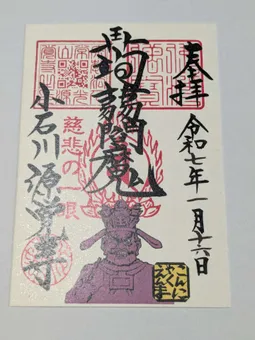 奉拝
令和七年一月十六日
蒟蒻閻魔
慈悲の一眼
小石川 源覚寺
こんに
やく
えんま